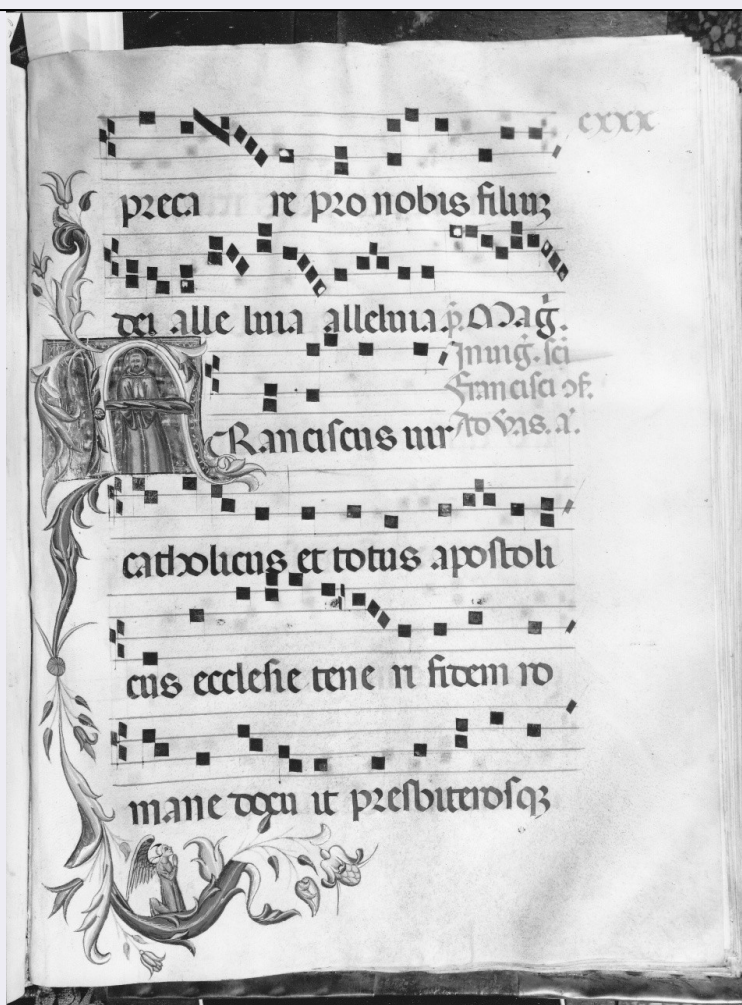 cxxx
preca re pro nobis filiuꝫ
dei alle luia alleluia. p̄. Mag̅.
In uig̅. sc̅i
Francisci ↄf.
Ad vas. a̅.
FRanciscus uir
catholicus et totus apostoli
cus ecclesie tene ri fidem ro
mane docu it presbiterosqꝫ